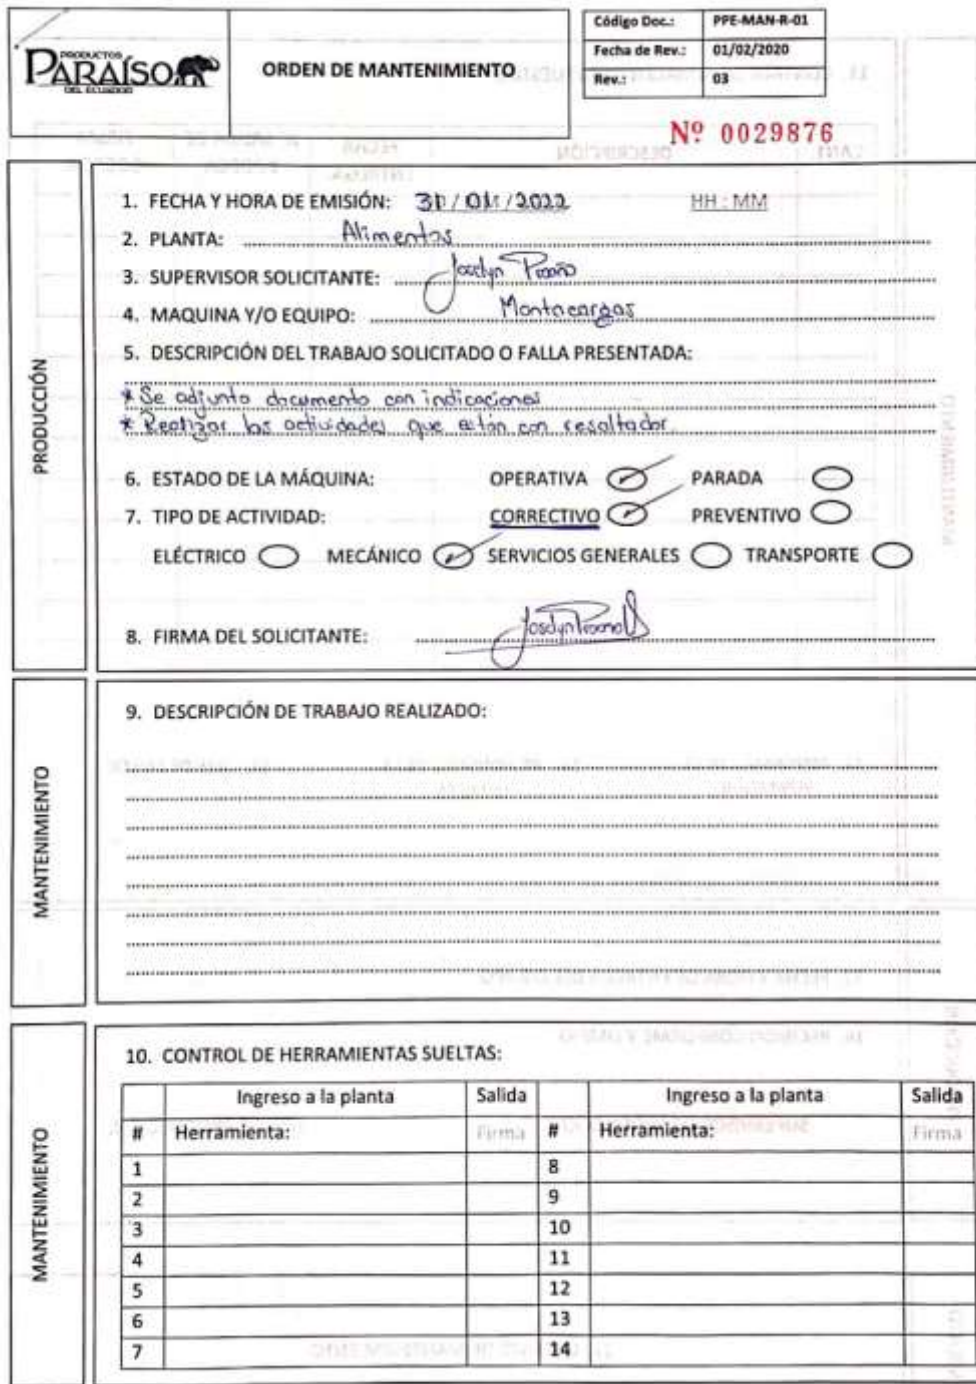 PRODUCTOS
PARAÍSO
DEL ECUADOR
ORDEN DE MANTENIMIENTO
Código Doc.: PPE-MAN-R-01
Fecha de Rev.: 01/02/2020
Rev.: 03
Nº 0029876
PRODUCCIÓN
1. FECHA Y HORA DE EMISIÓN: / /2022 HH : MM
2. PLANTA: Alimentos
3. SUPERVISOR SOLICITANTE: Joselyn
4. MAQUINA Y/O EQUIPO: Montacargas
5. DESCRIPCIÓN DEL TRABAJO SOLICITADO O FALLA PRESENTADA:
* Se adjunto documento con indicaciones
* Realizar las actividades que estan con resaltador.
6. ESTADO DE LA MÁQUINA: OPERATIVA PARADA
7. TIPO DE ACTIVIDAD: CORRECTIVO PREVENTIVO
ELÉCTRICO MECÁNICO SERVICIOS GENERALES TRANSPORTE
8. FIRMA DEL SOLICITANTE:
MANTENIMIENTO
9. DESCRIPCIÓN DE TRABAJO REALIZADO:
MANTENIMIENTO
10. CONTROL DE HERRAMIENTAS SUELTAS:
Ingreso a la planta Salida Ingreso a la planta Salida
# Herramienta: Firma # Herramienta: Firma
1 8
2 9
3 10
4 11
5 12
6 13
7 14